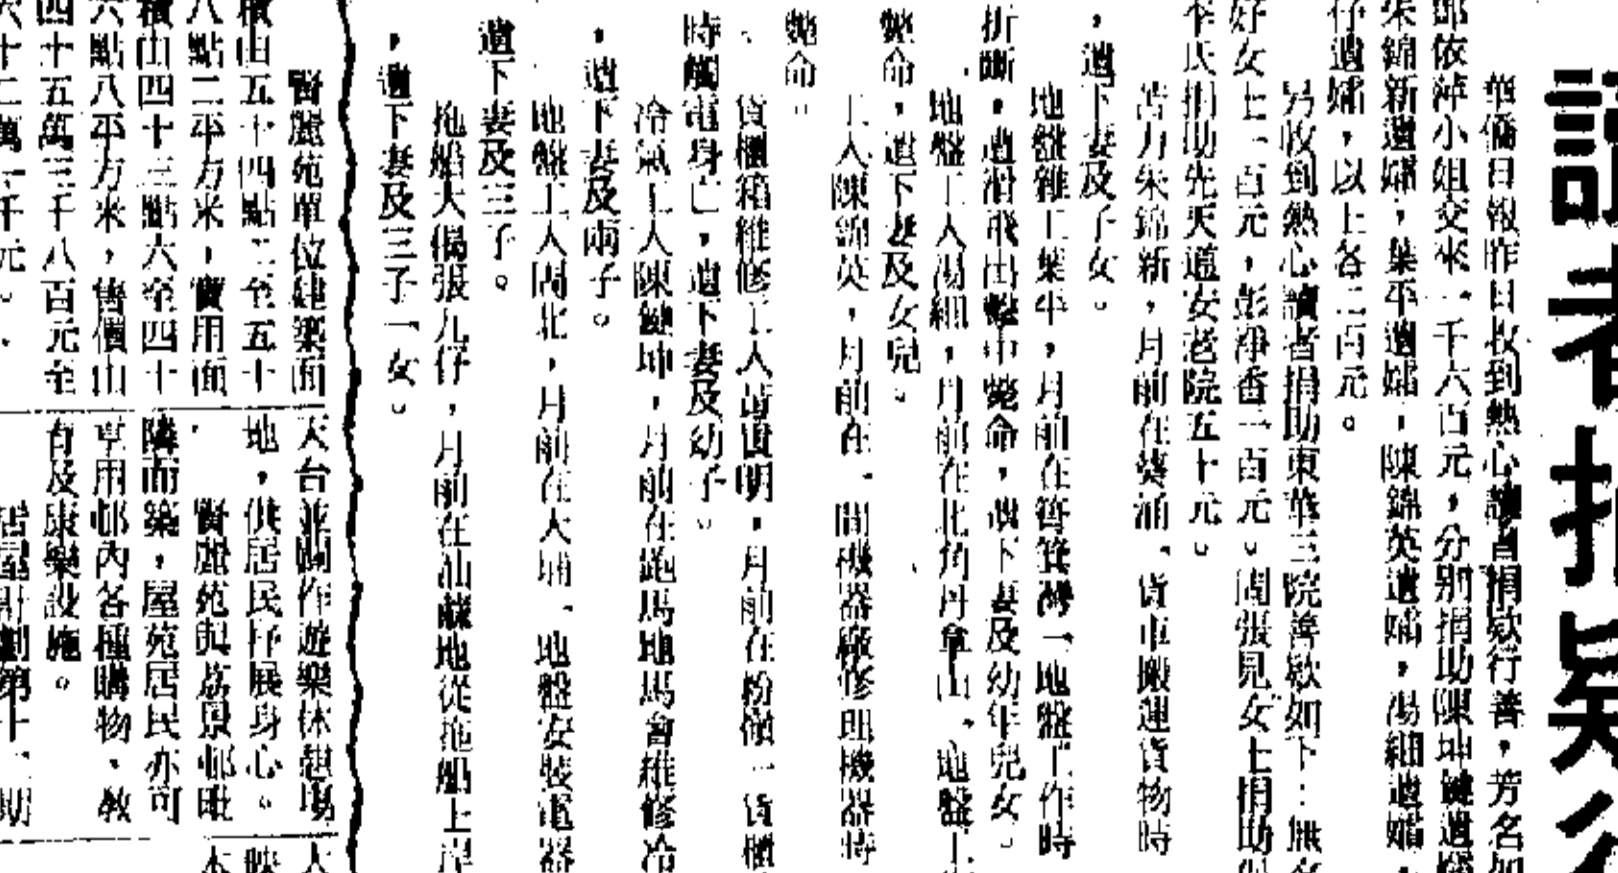 讀者捐欵
華僑日報昨日收到熱心讀者捐欵行善，芳名如
鄧依萍小姐交來一千六百元，分別捐助陳坤鍵遺孀
朱錦新遺孀，葉平遺孀，陳錦英遺孀，湯細遺孀，
仔遺孀，以上各二百元。
另收到熱心讀者捐助東華三院善欵如下：無名
好女士一百元，彭淨香一百元。周張見女士捐助
李氏捐助先天道安老院五十元。
苦力朱錦新，月前在葵涌一貨車搬運貨物時
，遺下妻及子女。
地盤雜工葉牛，月前在筲箕灣一地盤工作時
折斷，過滑飛出擊中斃命，遺下妻及幼年兒女。
地盤工人湯細，月前在北角丹拿山一地盤工
斃命，遺下妻及女兒。
工人陳錦英，月前在一間機器廠修理機器時
斃命。
貨櫃箱維修工人黃賞明，月前在粉嶺一貨櫃
時觸電身亡，遺下妻及幼子。
冷氣工人陳鍵坤，月前在跑馬地馬會維修冷
，遺下妻及兩子。
地盤工人周北，月前在大埔一地盤安裝電器
遺下妻及三子。
拖船大偈張九仔，月前在油蔴地從拖船上岸
，遺下妻及三子一女。
賢麗苑單位建築面
積由五十四點二至五十
八點二平方米，實用面
積由四十三點六至四十
六點八平方米，售價由
四十五萬三千八百元至
六十二萬一千元。
天台並闢作遊樂休憩場
地，供居民抒展身心。
賢麗苑與荔景邨毗
隣而築，屋苑居民亦可
享用邨內各種購物、教
育及康樂設施。
居屋計劃第十二期